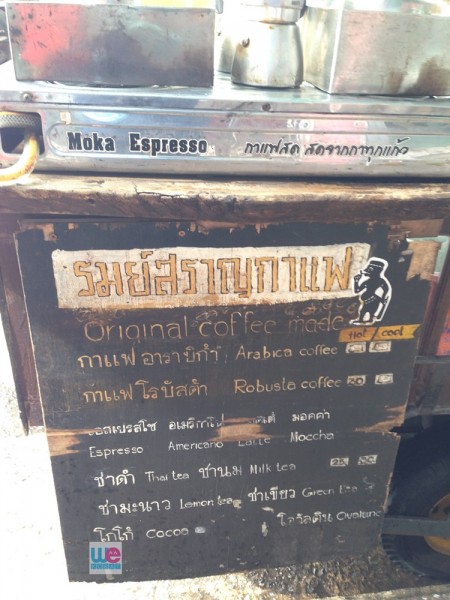 Moka Espresso กาแฟสด สดจากกาทุกแก้ว
รมย์สราญกาแฟ
Original coffee made
Hot / cool
กาแฟอาราบิก้า Arabica coffee
กาแฟโรบัสต้า Robusta coffee
เอสเปรสโซ อเมริกาโน มอคค่า
Espresso Americano Latte Moccha
ชาดำ Thai tea ชานม Milk tea 25
ชามะนาว Lemon tea ชาเขียว Green tea
โกโก้ Cocoa โอวัลติน Ovaltine
we